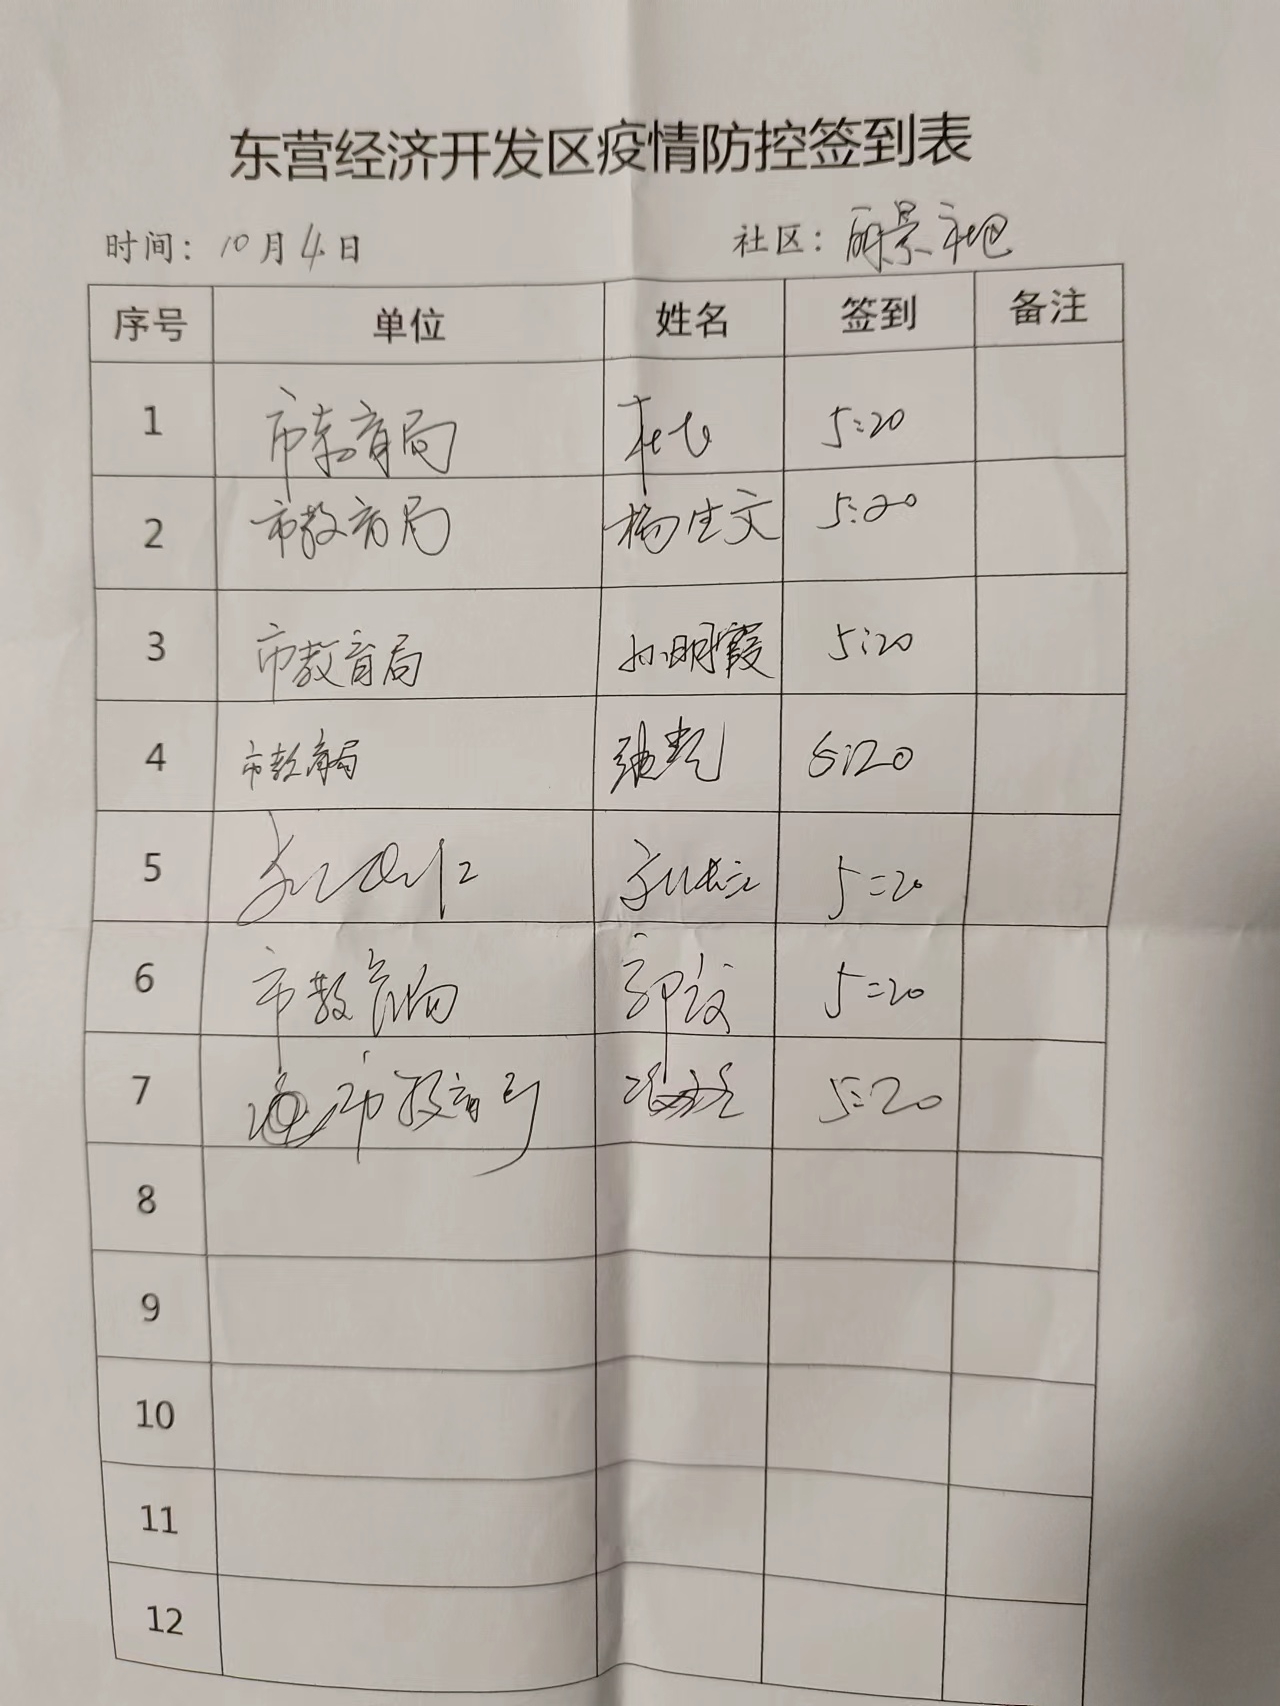 东营经济开发区疫情防控签到表
时间：10月4日 社区：丽景社区
序号 单位 姓名 签到 备注
1 市教育局 5:20
2 市教育局 杨生文 5:20
3 市教育局 孙明霞 5:20
4 市教育局 5:20
5 5:20
6 市教育局 5:20
7 市教育局 5:20
8
9
10
11
12